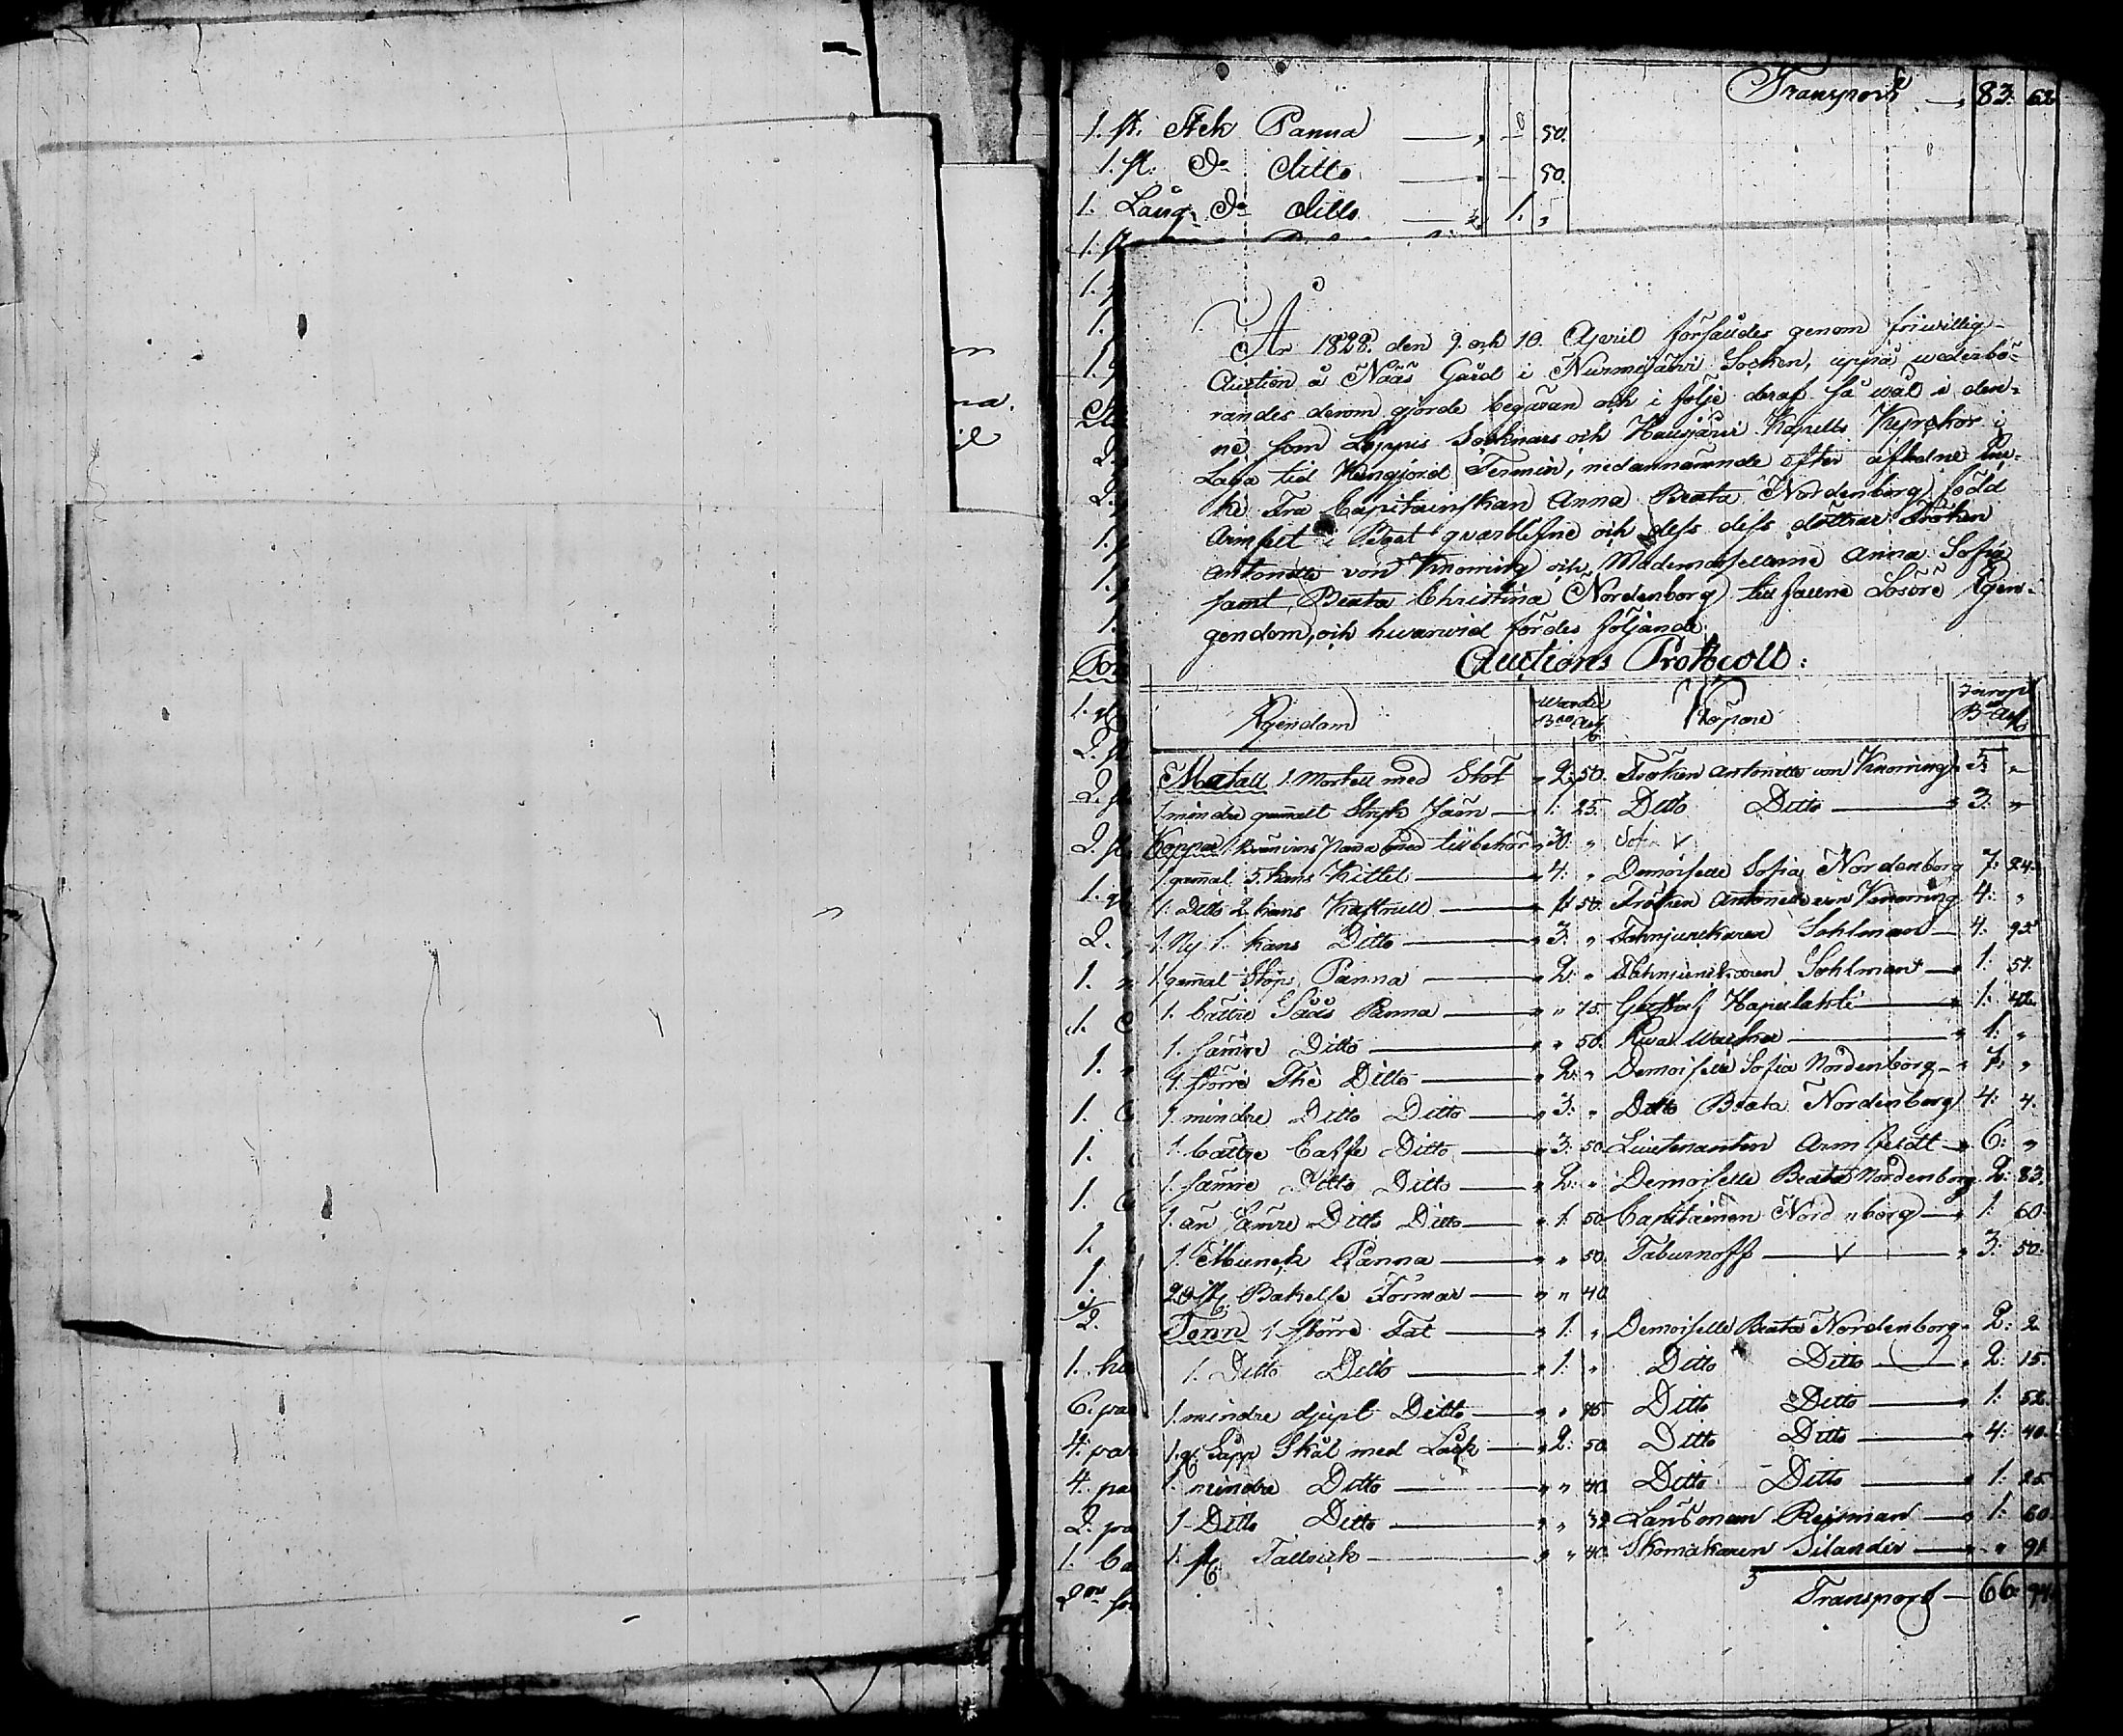 Transport 83: 62
1. st. Stek Panna 50.
1. st. Do Ditto 50.
1. Lång Do Ditto 1. "
År 1828. den 9. och 10. April försåldes genom friwillig
Auction å Nääs Gård i Nurmijärvi Socken, uppå wederbö-
randes derom gjorde begäran och i följe deraf så wäl i den-
ne som Loppis Socknars och Hausjärvi Kapells Kyrckor i
Laga tid Kungjord Termin, nedannämnde efter aflidne En-
ke Fru Capitainskan Anna Beata Nordenborg född
Armfelt i Boet qvarblefne och dess dess döttrar Fröken
Antonette von Knorring och Mademoisellerne Anna Sofia
samt Beata Christina Nordenborg tillfallne Lösöre Egen-
gendom, och hwarwid fördes följande
Auctions Protocoll:
Egendom Wärde Köpare Inrop
Metall 1. Mortell med Stöt 2: 50. Fröken Antonette von Knorring 5: "
1 mindre gammalt Stryk Järn 1: 25. Ditto Ditto 3: "
Koppar 1. Brännvins Panna med tillbehör 30: " Sofia
1. gammal 5. kans Kittel 4: " Demoiselle Sofia Nordenborg 7: 24.
1. Ditto 2. kans Kastrull 1: 50. Fröken Antonette von Knorring 4: "
1. Ny 1. kans Ditto 3: " Fahnjunckaren Sohlman 4. 95
1. gammal Stöps Panna 2: " Fahnjunckaren Sohlman 1: 51.
1. bättre Såås Panna " 75. Gustaf Hapulahti 1: 42.
1. sämre Ditto " 50. 1: "
1. större Thé Ditto 2: " Demoiselle Sofia Nordenborg 7: "
1. mindre Ditto Ditto 3: " Ditto Beata Nordenborg 4: 4.
1. bättre Caffe Ditto 3: 50 Lieutenanten Armfeldt 6: "
1. sämre Ditto Ditto 2: " Demoiselle Beata Nordenborg 2: 83.
1. än Sämre Ditto Ditto 1: 50 Capitainen Nordenborg 1: 60.
1. Munck Panna " 50. Taburnoff 3: 50.
20 st. Bakelse Formar " 40.
Tenn 1 större Fat 1: " Demoiselle Beata Nordenborg 2: 2
1. Ditto Ditto 1: " Ditto Ditto 2: 15.
1. mindre djupt Ditto " 75 Ditto Ditto 1: 52.
1. st. Såpp Skål med Lock 2: 50 Ditto Ditto 4: 40.
1. mindre Ditto " 40. Ditto Ditto 1: 25.
1. Ditto Ditto " 32 Länsman Reisman 1: 60.
1. st. Tallrick " 40. Skomakaren Silander " 91.
Transport 66: 94